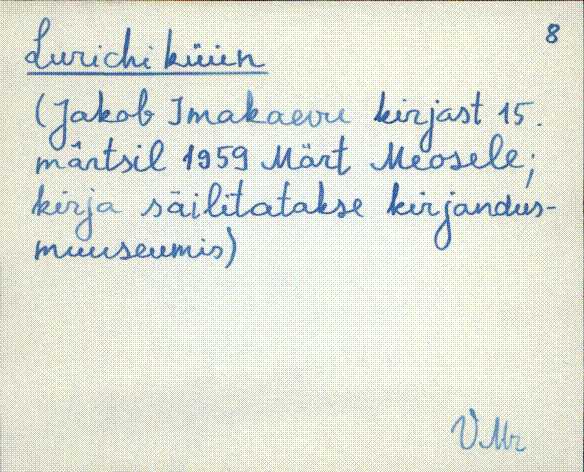 8
Lurichi küün
(Jakob Imakaevu kirjast 15.
märtsil 1959 Märt Meosele;
kirja säilitatakse kirjandus-
muuseumis)
VMr